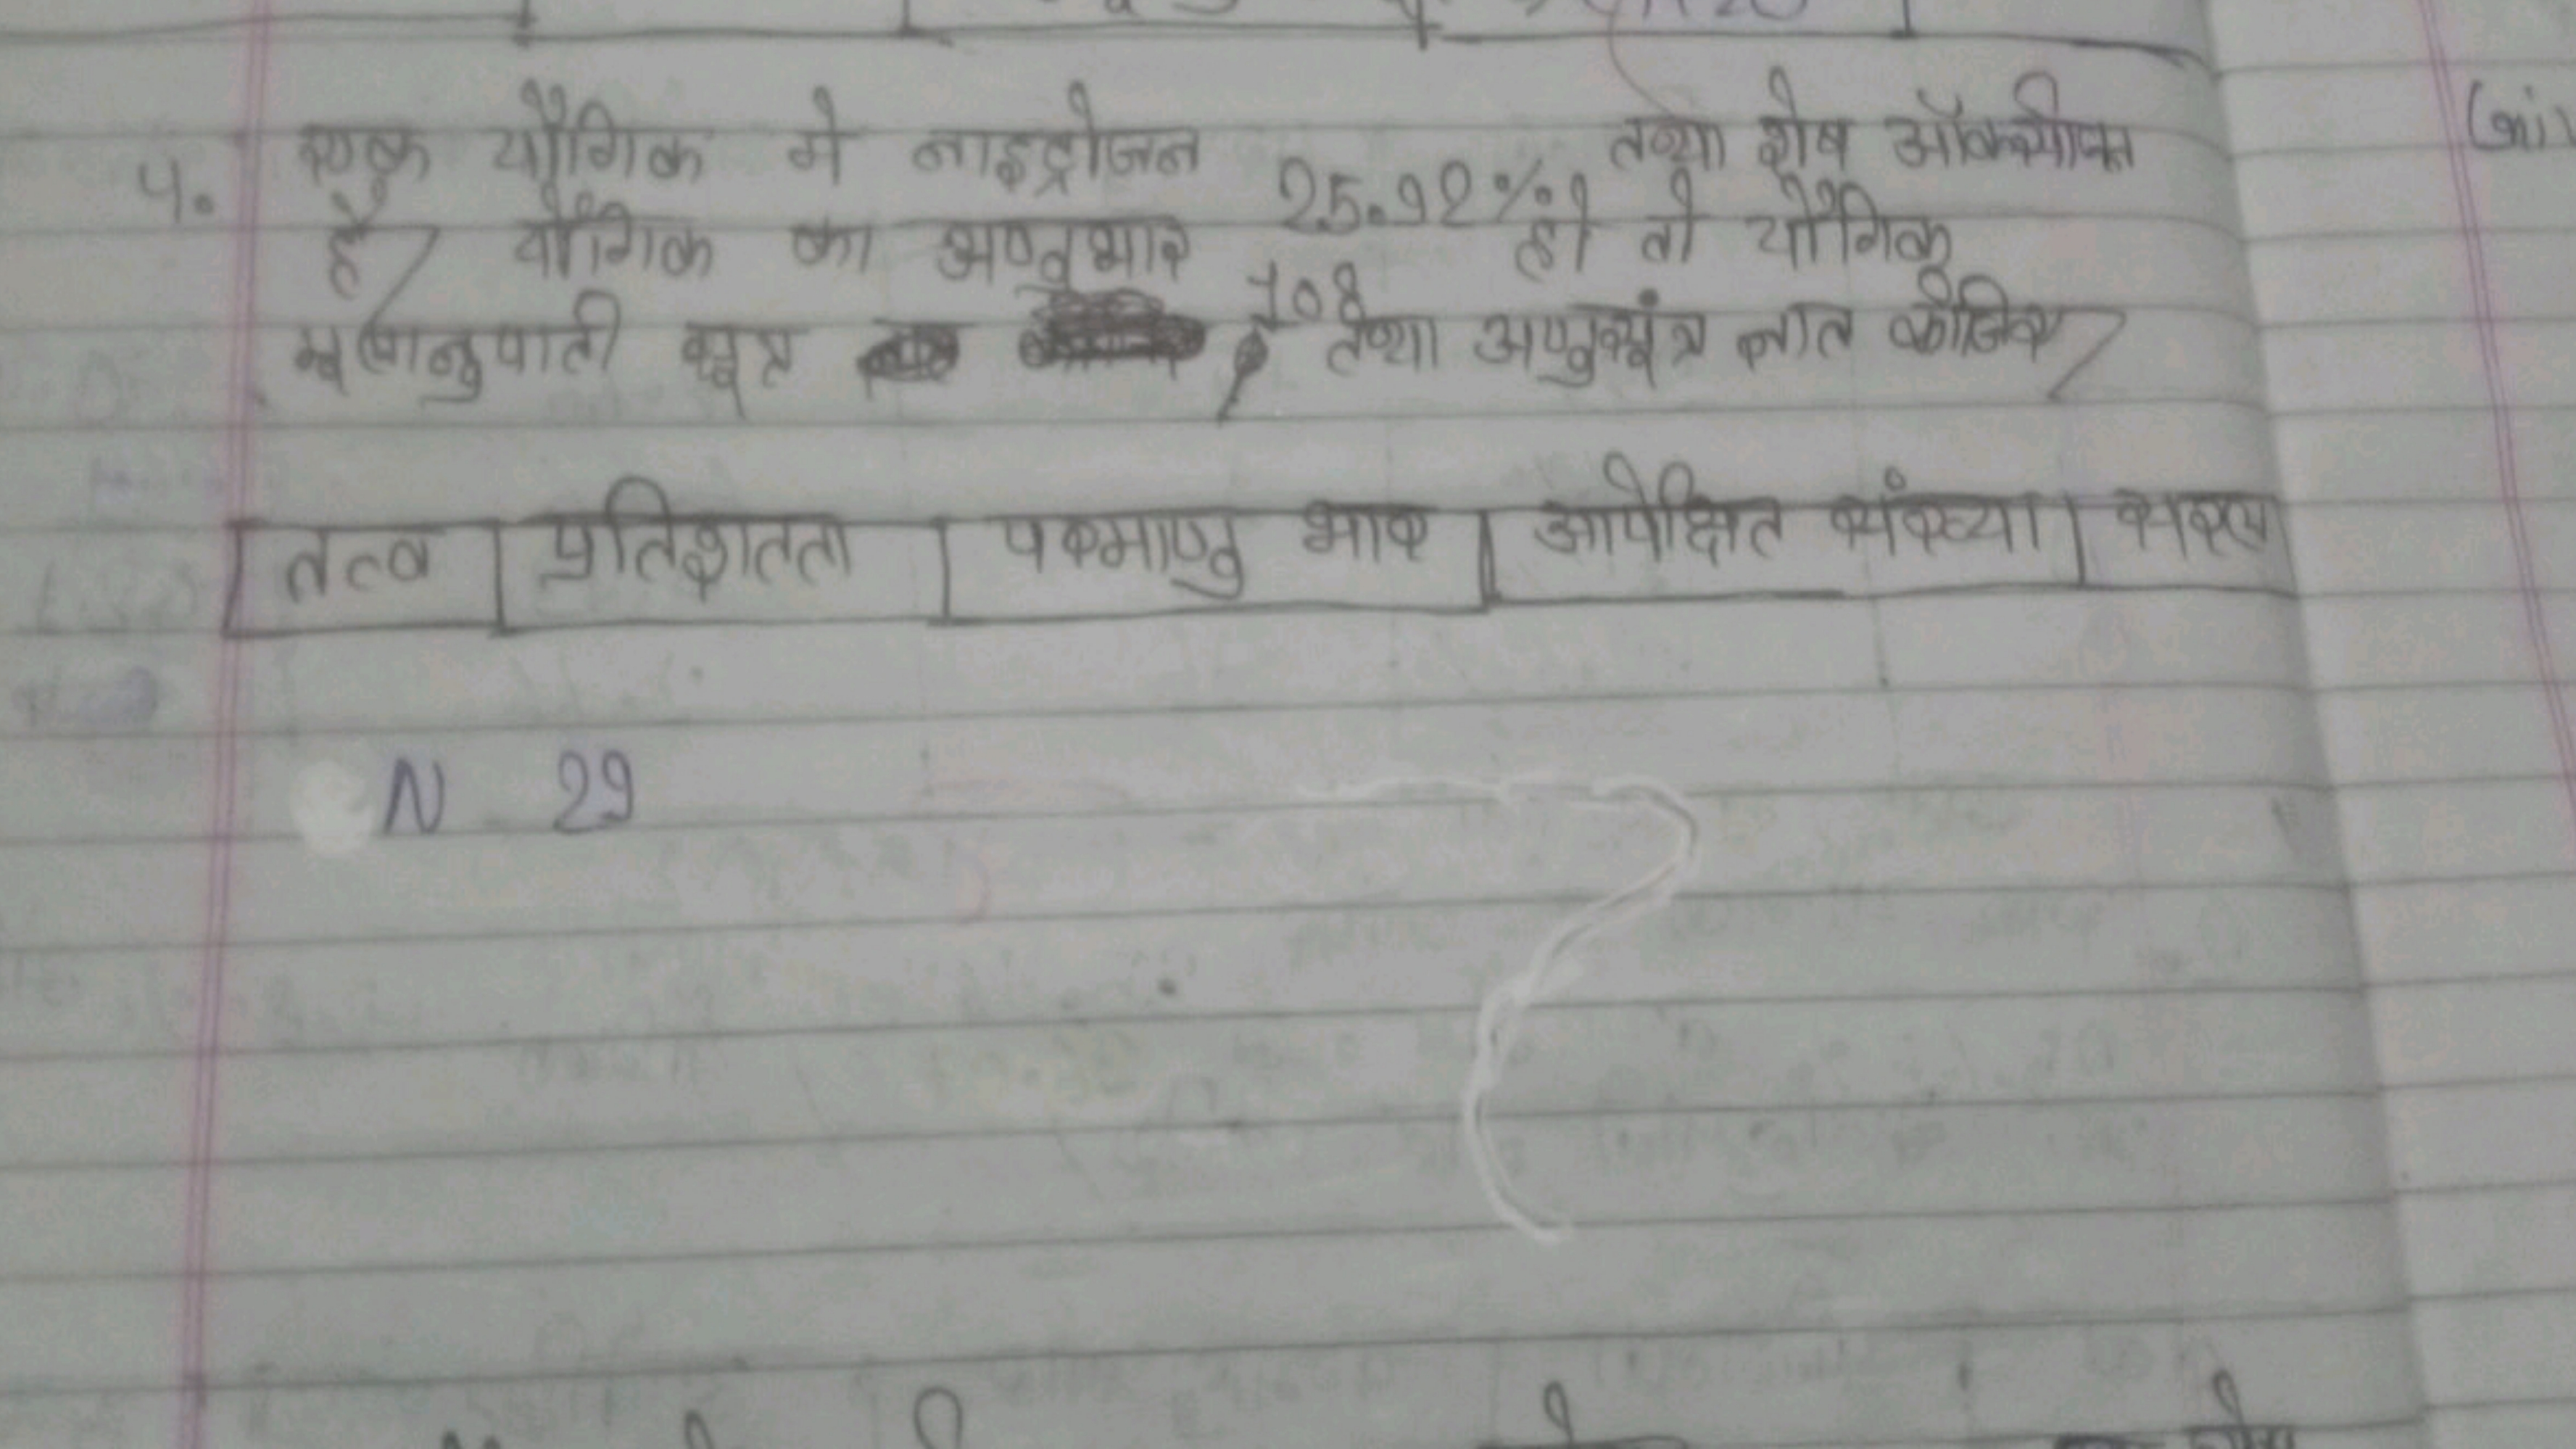 4. एक यौगिक मे नाइट्रोजन 25.92% तथा शेष ऑक्सीजन
है/ यौगिक का अणुभार 108 हो तो यौगिक
मूलानुपाती सूत्र तथा अणुसूत्र ज्ञात कीजिए/
तत्व प्रतिशतता परमाणु भार आपेक्षित संख्या सरल
N 29